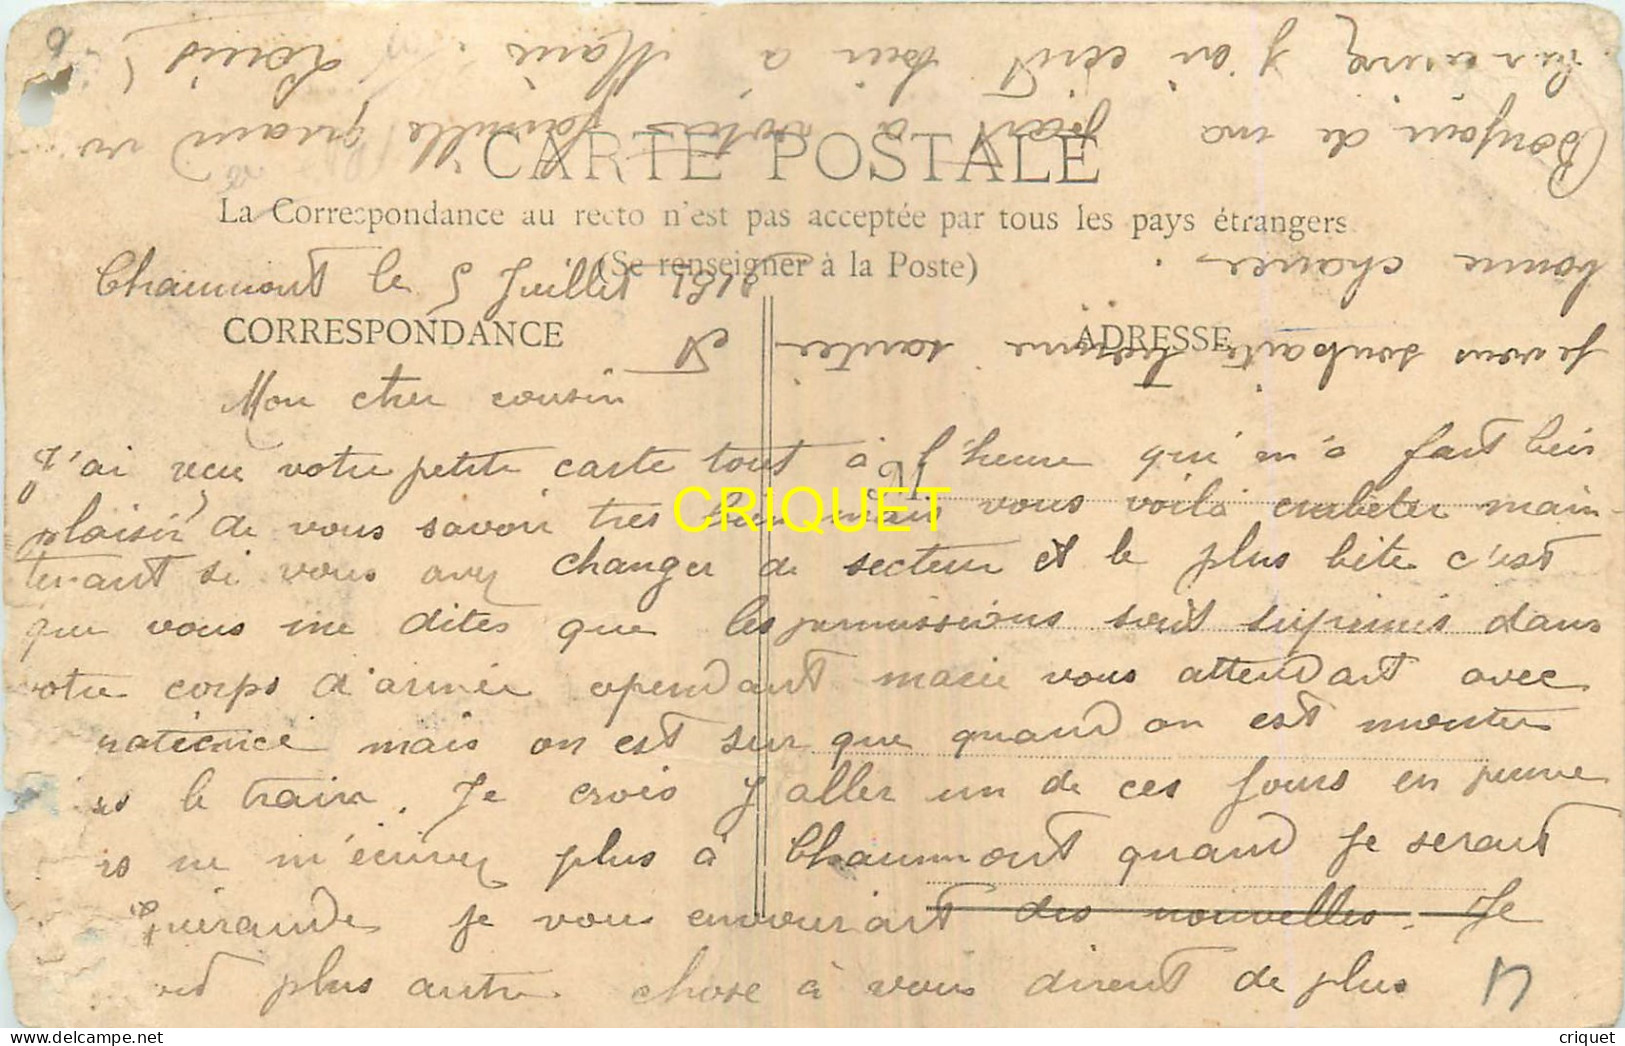 CARTE POSTALE
La Correspondance au recto n'est pas acceptée par tous les pays étrangers
(Se renseigner à la Poste)
CORRESPONDANCE
ADRESSE
Chaumont le 5 Juillet
Mon cher cousin
J'ai recu votre petite carte tout à l'heure qui m'a fart bien
plaisir de vous savoir tres bien mais vous voilà embêter main-
tenant si vous avez changer de secteur et le plus bête c'est
que vous me dites que les permissions sont suprimis dans
votre corps d'armée ependant marie vous attendart avec
patience mais on est sur que quand on est monter
le train. Je crois y aller un de ces Jours en perme
ne m'écrivez plus à Chaumont quand je serait
Guérande je vous envoirart des nouvelles. Je
plus autre chose à vous dirent de plus
Je vous souhaite bonne santée et
bonne chance.
Bonjour de ma part à votre famille quand vs
J'ai écrit hier à Marie. Louis
M
CRIQUET
criquet